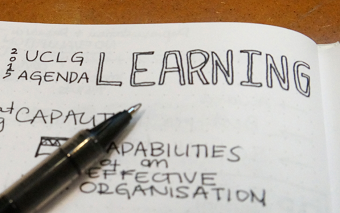 2015 UCLG AGENDA LEARNING
CAPACIT
CAPABILITIES
of an
EFFECTIVE
ORGANISATION